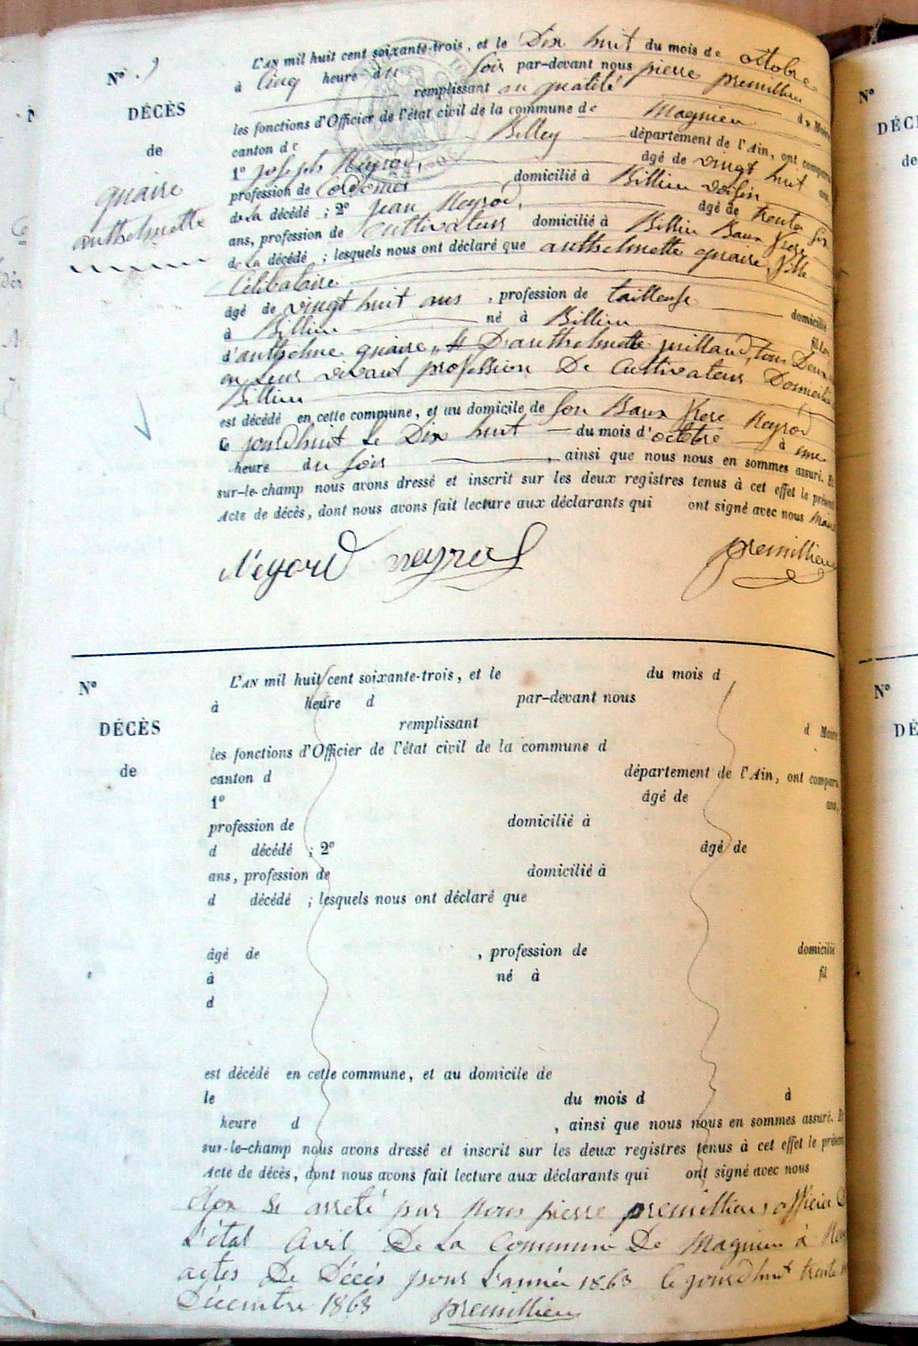 N° 9
DÉCÈS
de
quaire
anthelmette
L'AN mil huit cent soixante-trois, et le Dix huit du mois de octobre
à Cinq heure du soir par-devant nous pierre premillieu
remplissant en qualité de Maire
les fonctions d'Officier de l'état civil de la commune de Magnieu
canton de Belley département de l'Ain, ont comparu
1° joseph Neyrod, âgé de vingt huit ans,
profession de domicilié à Billieu voisin
de la décédé ; 2° jean Neyrod, âgé de trente six
ans, profession de Cultivateur domicilié à Billieu Baux frere
de la décédé ; lesquels nous ont déclaré que anthelmette quaire, fille
Célibataire
âgé de vingt huit ans , profession de tailleuse domicilié
à Billieu né à Billieu fille
d'anthelme quaire, & D'anthelmette juilland, tous Deux
en leur vivant profession De Cultivateurs Domicilié
Billieu
est décédé en cette commune, et au domicile de son Baux frere Neyrod
Ce jourdhuit le Dix huit du mois d'octobre à une
heure du soir , ainsi que nous nous en sommes assuré. Et
sur-le-champ nous avons dressé et inscrit sur les deux registres tenus à cet effet le présent
Acte de décès, dont nous avons fait lecture aux déclarants qui ont signé avec nous Maire
Neyrod neyrod premillieu
N°
DÉCÈS
de
L'AN mil huit cent soixante-trois, et le du mois d
à heure d par-devant nous
remplissant d Maire
les fonctions d'Officier de l'état civil de la commune d
canton d département de l'Ain, ont comparu
1° âgé de ans,
profession de domicilié à
d décédé ; 2° âgé de
ans, profession de domicilié à
d décédé ; lesquels nous ont déclaré que
âgé de , profession de domicilié
à né à fil
d
est décédé en cette commune, et au domicile de
le du mois d d
heure d , ainsi que nous nous en sommes assuré. Et
sur-le-champ nous avons dressé et inscrit sur les deux registres tenus à cet effet le présent
Acte de décès, dont nous avons fait lecture aux déclarants qui ont signé avec nous
Clos et arreté par Nous pierre premillieu officier De
L'état Civil De La Commune De Magnieu à
actes De Décés pour L'année 1863 Ce jourdhuit trente
Décembre 1863 premillieu
N°
N°